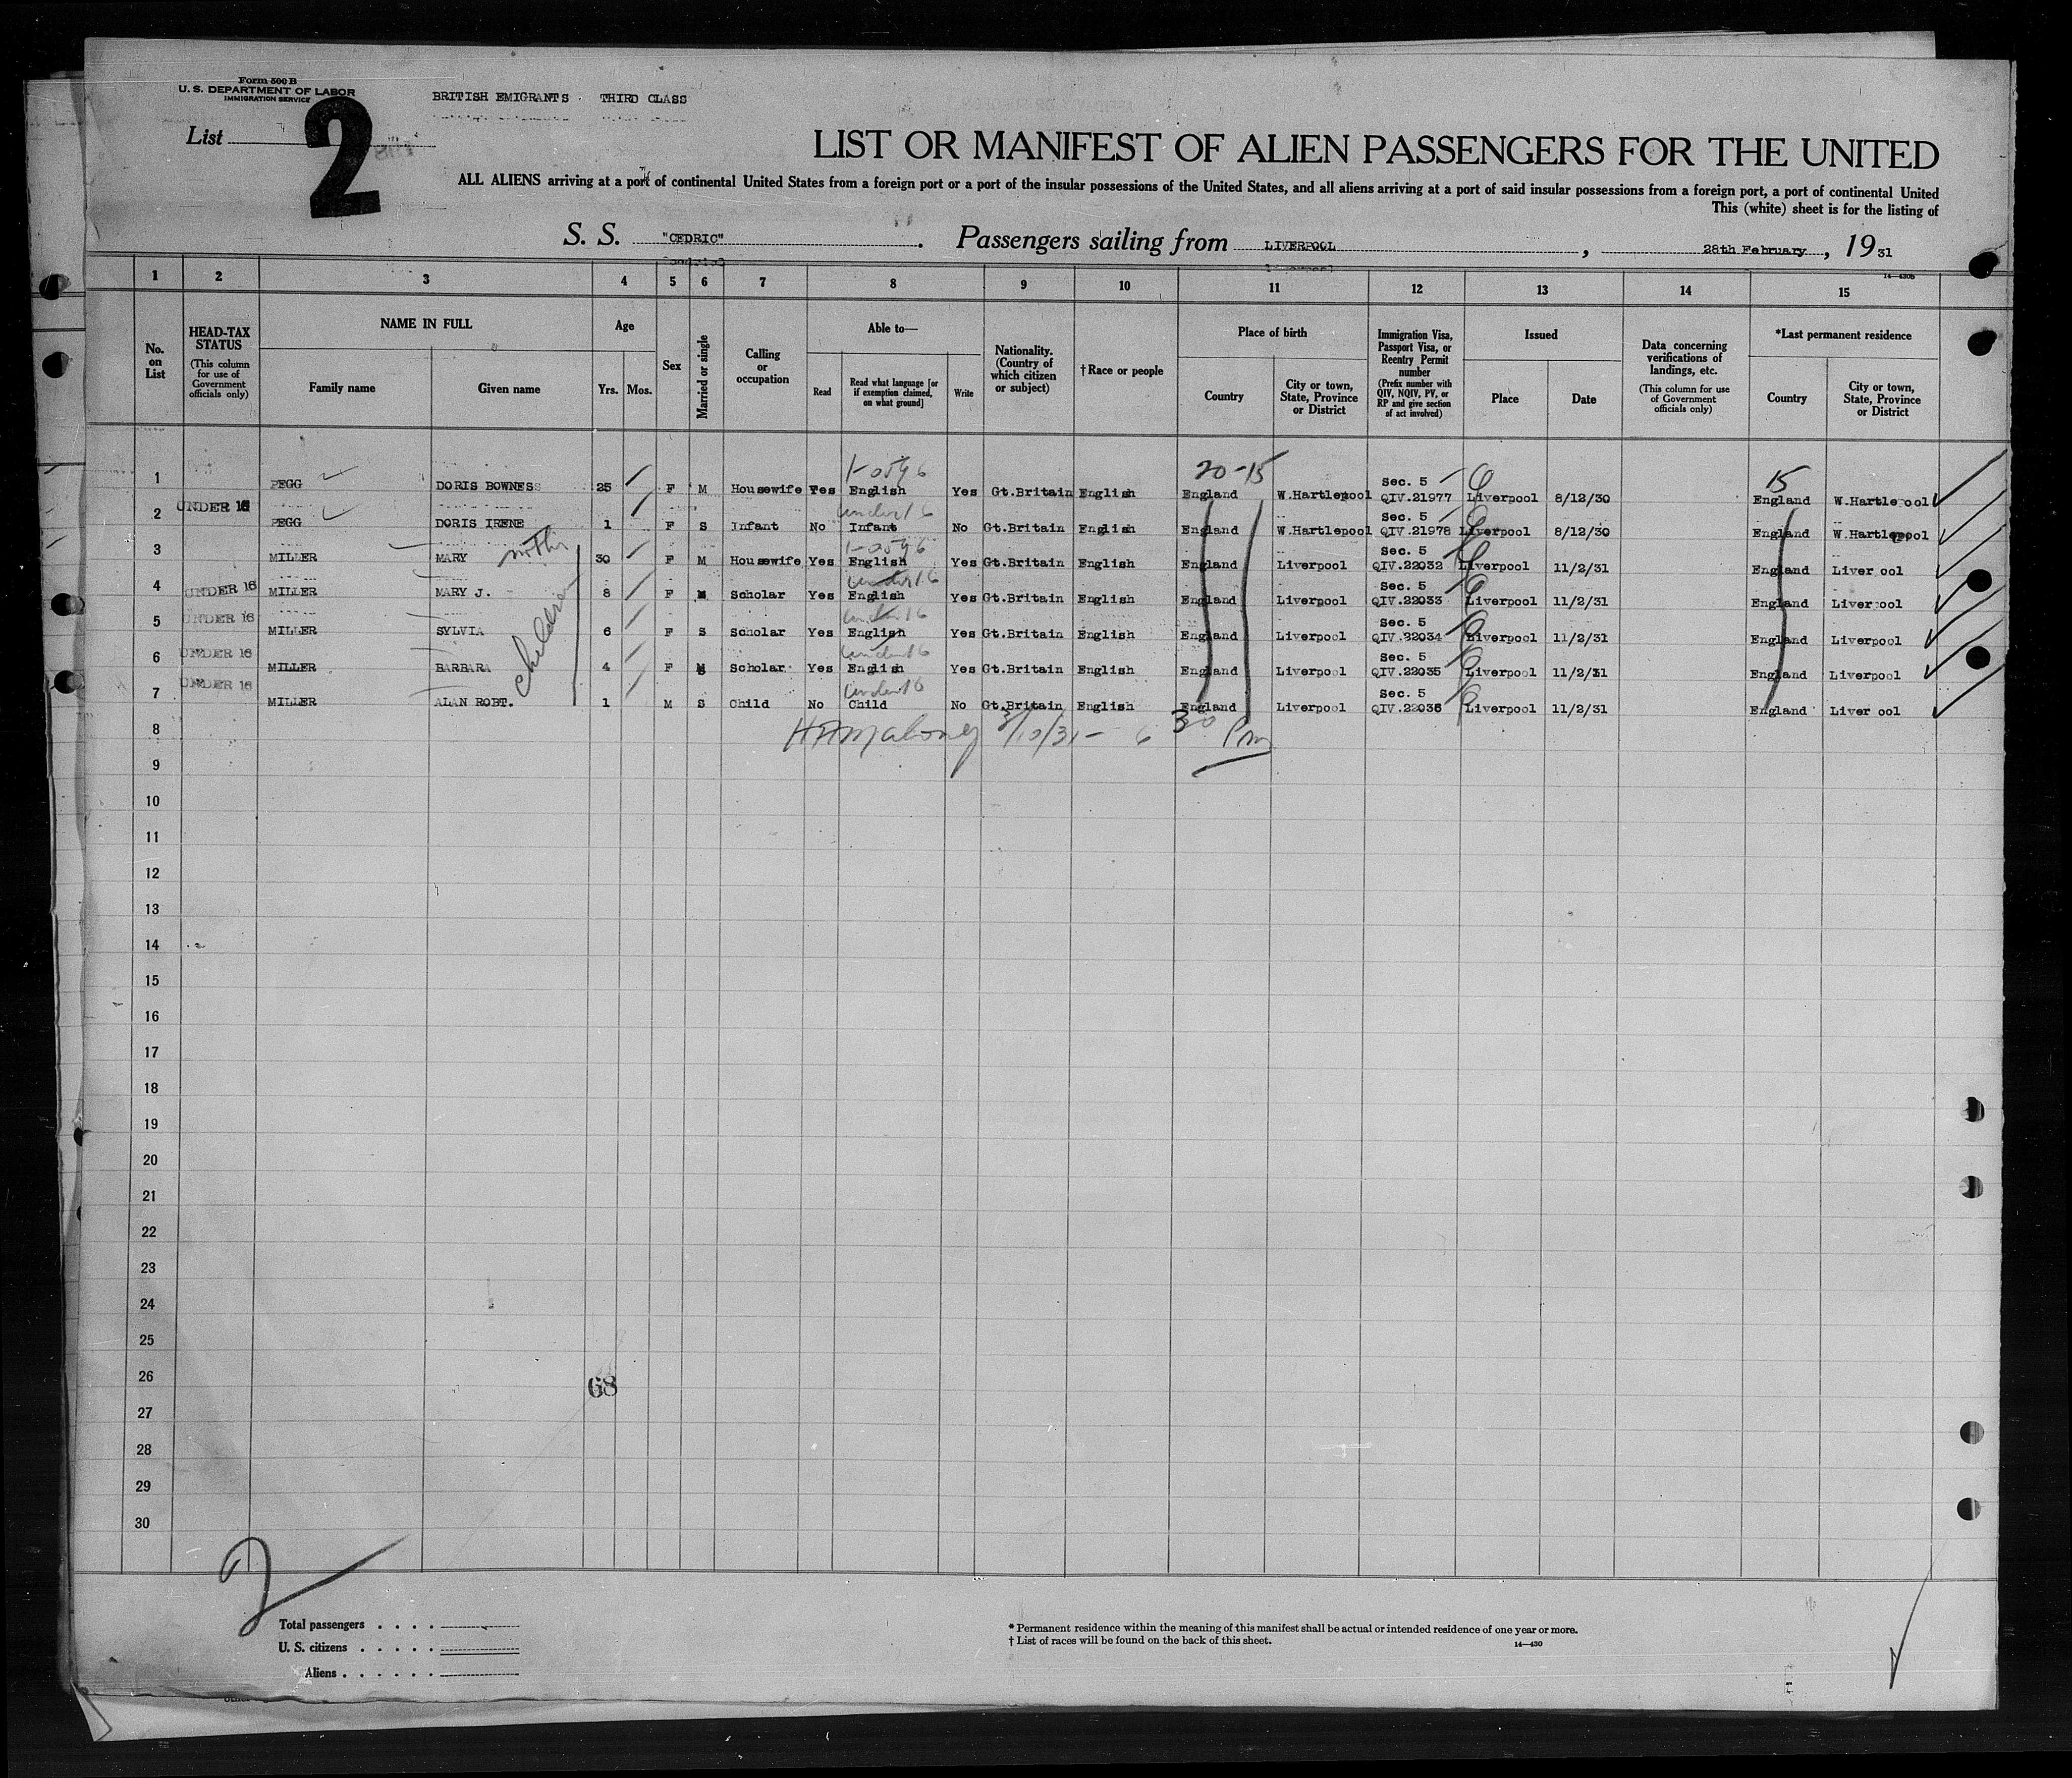 Form 500 B
U. S. DEPARTMENT OF LABOR
IMMIGRATION SERVICE
BRITISH EMIGRANTS THIRD CLASS
List 2
LIST OR MANIFEST OF ALIEN PASSENGERS FOR THE UNITED
ALL ALIENS arriving at a port of continental United States from a foreign port or a port of the insular possessions of the United States, and all aliens arriving at a port of said insular possessions from a foreign port, a port of continental United
This (white) sheet is for the listing of
S. S. "CEDRIC". Passengers sailing from LIVERPOOL, 28th February, 19 31
14—430b
1 2 3 4 5 6 7 8 9 10 11 12 13 14 15
No. on List
HEAD-TAX STATUS (This column for use of Government officials only)
NAME IN FULL
Family name
Given name
Age
Yrs. Mos.
Sex
Married or single
Calling or occupation
Able to—
Read
Read what language [or if exemption claimed, on what ground]
Write
Nationality. (Country of which citizen or subject)
†Race or people
Place of birth
Country
City or town, State, Province or District
Immigration Visa, Passport Visa, or Reentry Permit number (Prefix number with QIV, NQIV, PV, or RP and give section of act involved)
Issued
Place
Date
Data concerning verifications of landings, etc. (This column for use of Government officials only)
*Last permanent residence
Country
City or town, State, Province or District
20-15 15
1 PEGG DORIS BOWNESS 25 F M Housewife Yes English Yes Gt.Britain English England W.Hartlepool Sec. 5 QIV.21977 Liverpool 8/12/30 England W.Hartle ool
UNDER 16 under 16
2 PEGG DORIS IRENE 1 F S Infant No Infant No Gt.Britain English England W.Hartlepool Sec. 5 QIV.21978 Liverpool 8/12/30 England W.Hartlepool
3 MILLER MARY mother 30 F M Housewife Yes English Yes Gt.Britain English England Liverpool Sec. 5 QIV.22032 Liverpool 11/2/31 England Liver ool
UNDER 16 under 16
4 MILLER MARY J. 8 F Scholar Yes English Yes Gt.Britain English England Liverpool Sec. 5 QIV.22033 Liverpool 11/2/31 England Liver ool
UNDER 16 under 16
5 MILLER SYLVIA children 6 F S Scholar Yes English Yes Gt.Britain English England Liverpool Sec. 5 QIV.22034 Liverpool 11/2/31 England Liverpool
UNDER 16 under 16
6 MILLER BARBARA 4 F Scholar Yes English Yes Gt.Britain English England Liverpool Sec. 5 QIV.22035 Liverpool 11/2/31 England Liverpool
UNDER 16 under 16
7 MILLER ALAN ROBT. 1 M S Child No Child No Gt.Britain English England Liverpool Sec. 5 QIV.22036 Liverpool 11/2/31 England Liver ool
8 3/10/31 - 6 30 Pm
9
10
11
12
13
14
15
16
17
18
19
20
21
22
23
24
25
26 68
27
28
29
30
2
Total passengers . . . .
U. S. citizens . . . . .
Aliens . . . . . .
* Permanent residence within the meaning of this manifest shall be actual or intended residence of one year or more.
† List of races will be found on the back of this sheet.
14—430